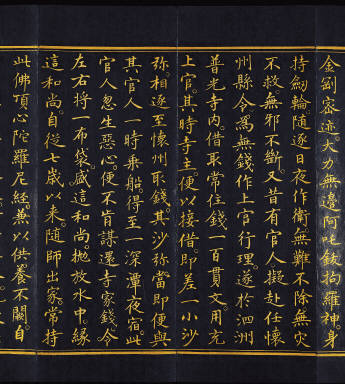 金剛密迹大力無邊阿吒鈸拘羅神身
持劍輪隨逐日夜作衛無難不除無灾
不救無邪不斷又昔有官人擬赴任懷
州縣令爲無錢作上官行理遂於泗洲
普光寺内借取常住錢一百貫文用充
上官其時寺主便以接借即差一小沙
弥相逐至懷州取錢其沙弥當即便與
其官人一時乘船得至一深潭夜宿此
官人忽生惡心便不肯謀還寺家錢令
左右將一布袋盛這和尚抛放水中緣
這和尚自從七歲以來隨師出家常持
此佛頂心陀羅尼經兼以供養不闕自